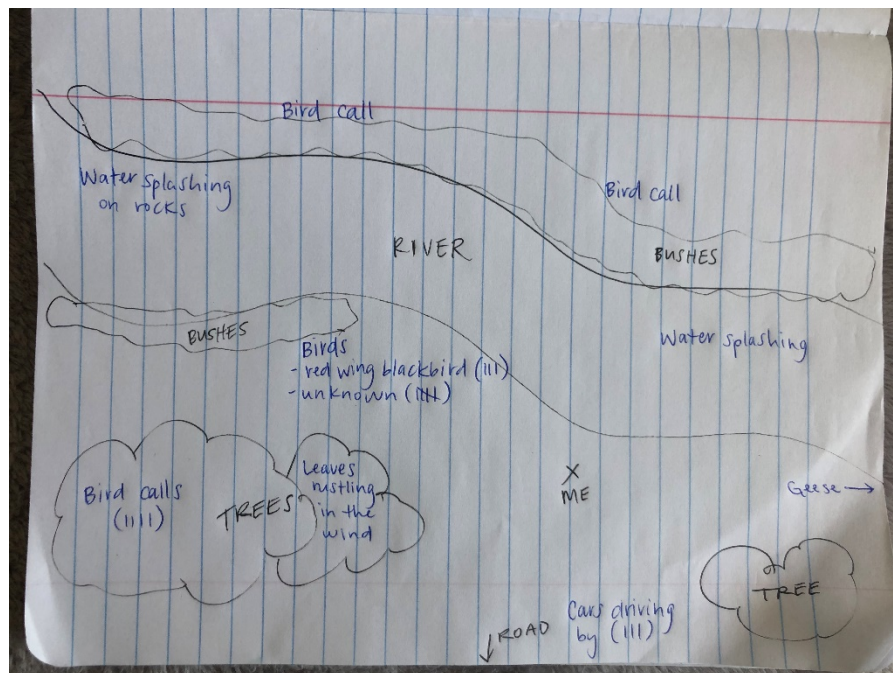 Bird call
Water splashing
on rocks
Bird call
RIVER
BUSHES
BUSHES
Water splashing
Birds
- red wing blackbird (III)
- unknown (IIII)
Bird calls
(IIII)
TREES
Leaves
rustling
in the
wind
X
ME
Geese →
TREE
↓ ROAD
Cars driving
by (III)